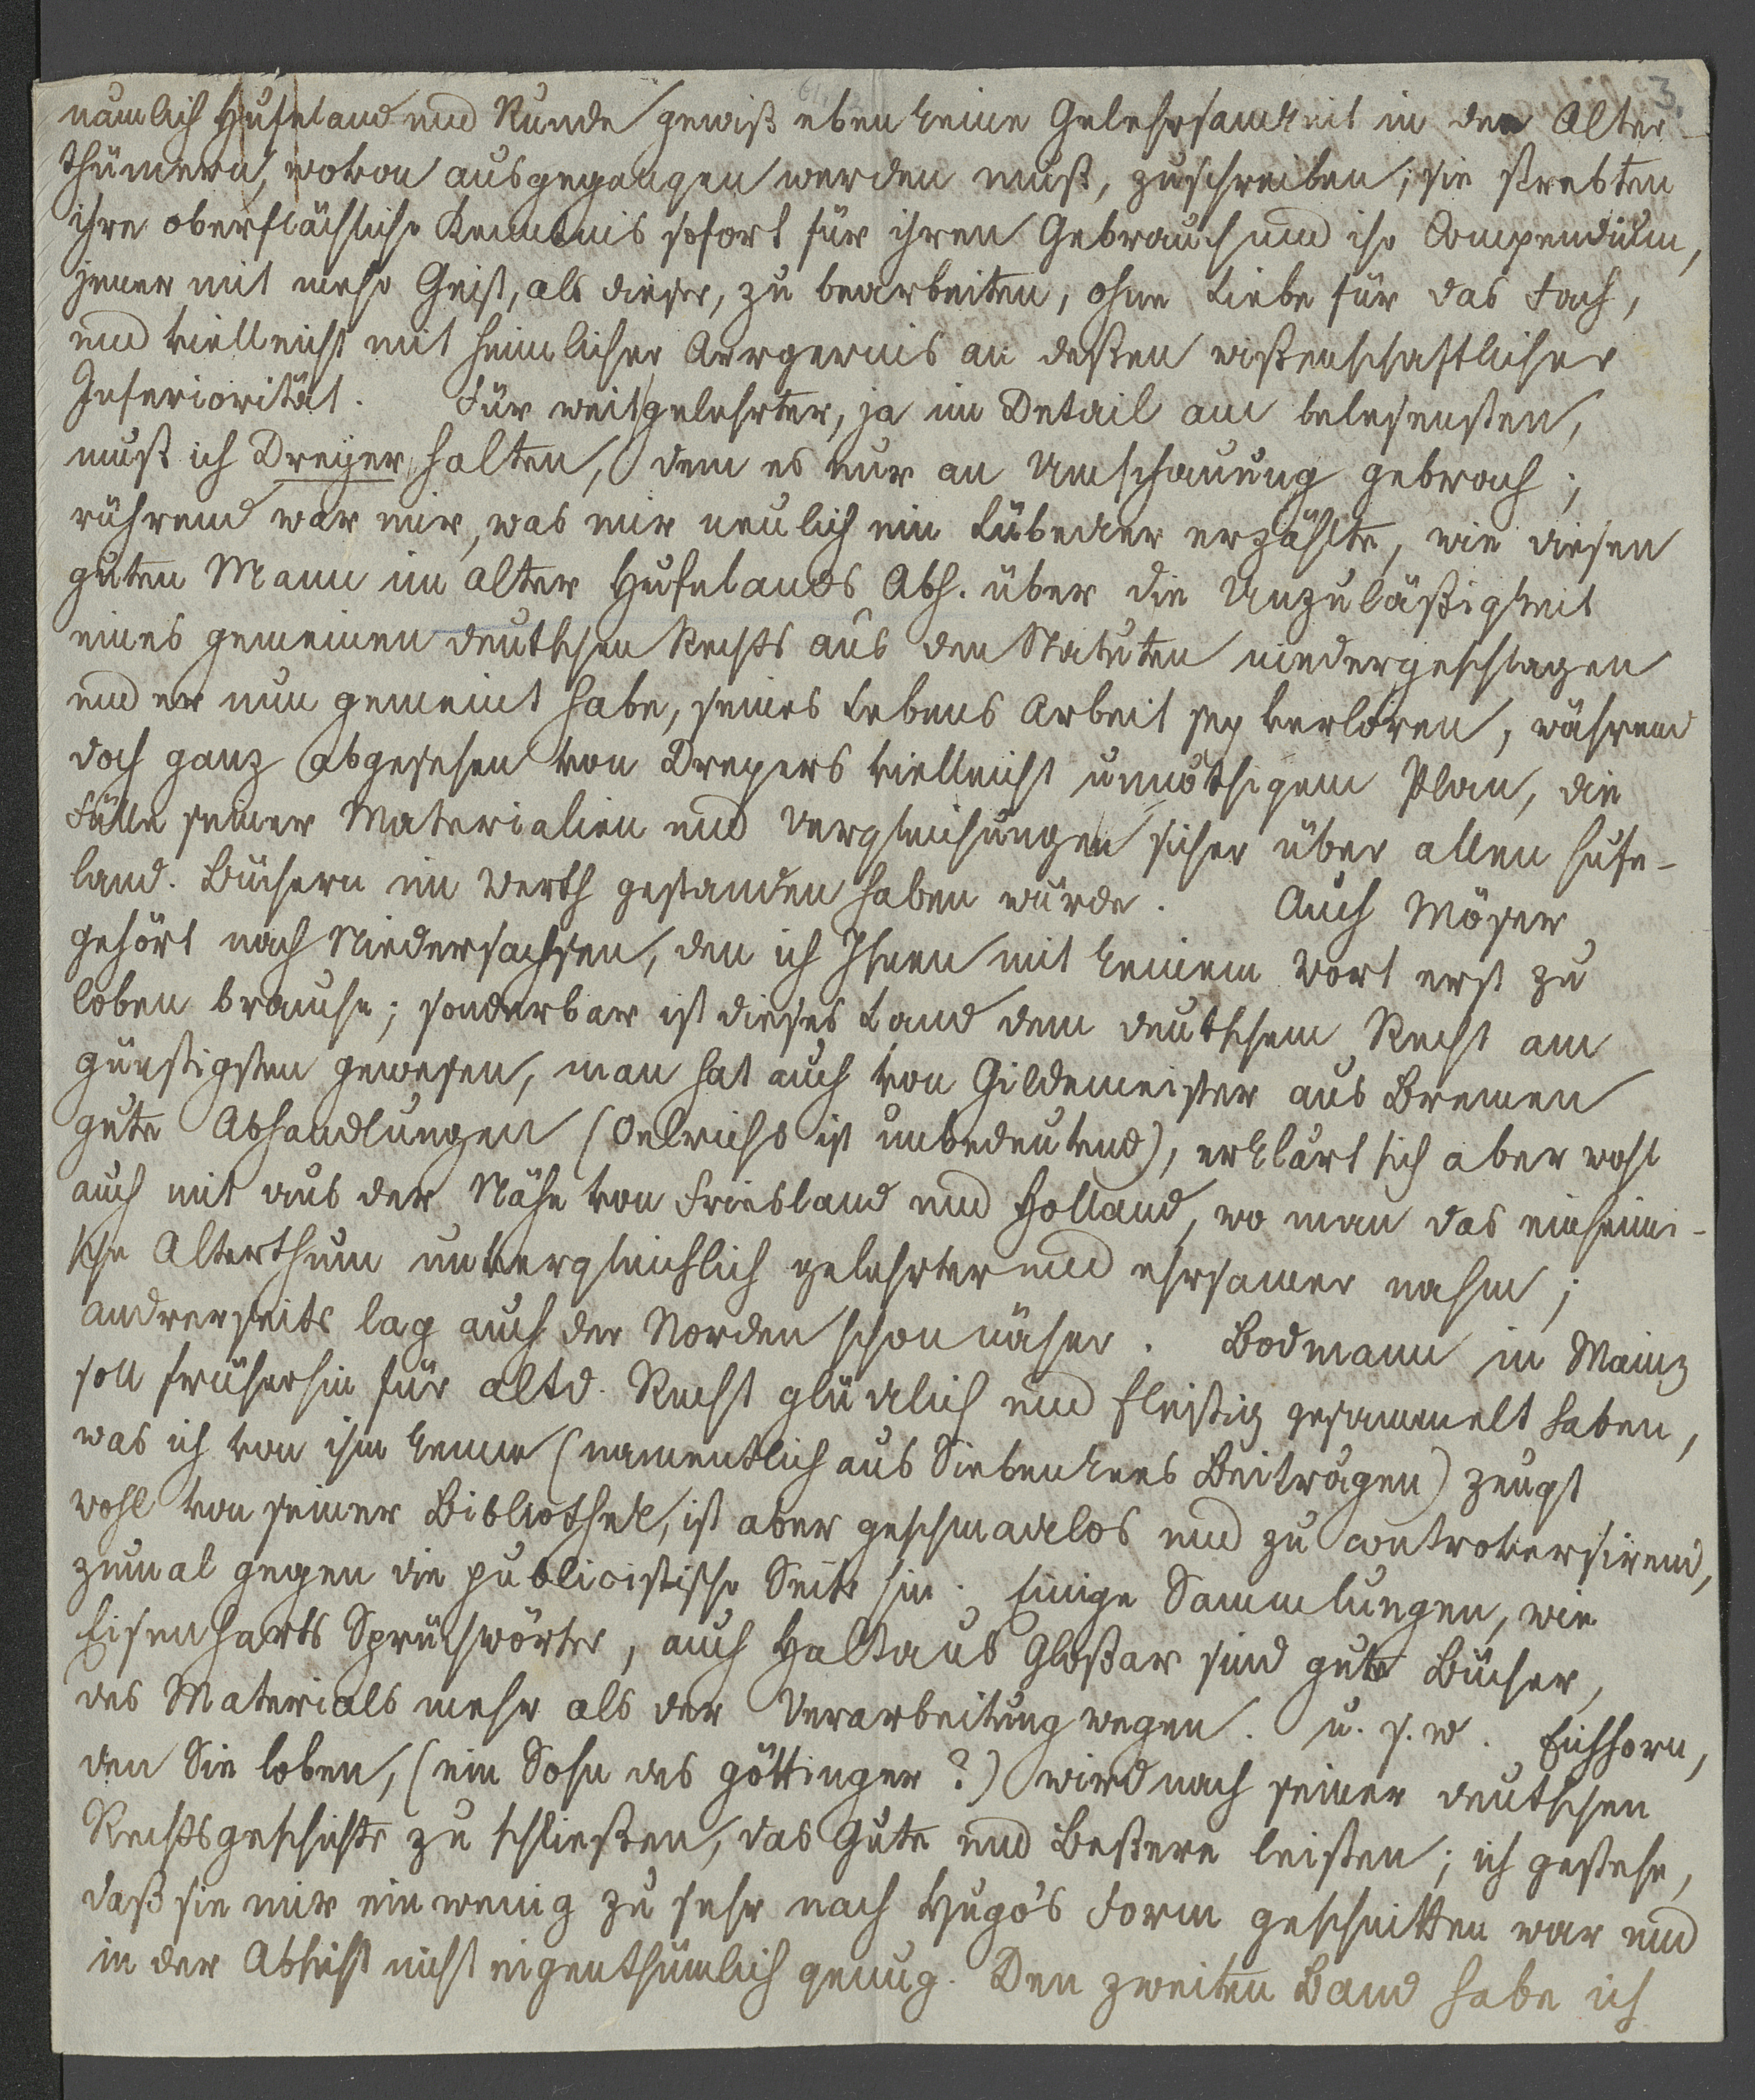 3.
nämlich Hufeland und Runde gewiß eben keine Gelehrsamkeit in den Alter-
thümern, wovon ausgegangen werden muß, zuschreiben; sie strebten
ihre oberflächliche Kenntnis sofort für ihren Gebrauch und ihr Compendium,
jener mit mehr Geist, als dieser, zu bearbeiten, ohne Liebe für das Fach,
und vielleicht mit heimlicher Aergernis an deßen wißenschaftlicher
Inferiorität. Für weit gelehrter, ja im Detail am belesensten,
muß ich Dreyer halten, dem es nur an Umschauung gebrach;
rührend war mir, was mir neulich ein Lübecker erzählte, wie diesen
guten Mann im Alter Hufelands Abh. über die Unzuläßigkeit
eines gemeinen deutschen Rechts aus den Statuten niedergeschlagen
und er nun gemeint habe, seines Lebens Arbeit sey verloren, während
doch ganz abgesehen von Dreyers vielleicht unnöthigem Plan, die
Fülle seiner Materialien und Vergleichungen sicher über allen Hufe-
land. Büchern im Werth gestanden haben würde. Auch Möser
gehört nach Niedersachsen, den ich Ihnen mit keinem Wort erst zu
loben brauche; sonderbar ist dieses Land dem deutschem Recht am
günstigsten gewesen, man hat auch von Gildemeister aus Bremen
gute Abhandlungen (Oelrichs ist unbedeutend), erklärt sich aber wohl
auch mit aus der Nähe von Friesland und Holland, wo man das einheimi-
sche Alterthum unvergleichlich gelehrter und ehrsamer nahm;
andrerseits lag auch der Norden schon näher. Bodmann in Mainz
soll früherhin für altd. Recht glücklich und fleißig gesammelt haben,
was ich von ihm kenne (namentlich aus Siebenkees Beiträgen) zeugt
wohl von seiner Bibliothek, ist aber geschmacklos und zu controversirend,
zumal gegen die publicistische Seite hin. Einige Sammlungen, wie
Eisenharts Sprüchwörter, auch Haltaus Gloßar sind gute Bücher,
des Materials mehr als der Verarbeitung wegen. u. s. w. Eichhorn,
den Sie loben, (ein Sohn des göttinger?) wird nach seiner deutschen
Rechtsgeschichte zu schließen, das Gute und Beßere leisten; ich gestehe,
daß sie mir ein wenig zu sehr nach Hugo's Form geschnitten war und
in der Absicht nicht eigenthümlich genug. Den zweiten Band habe ich